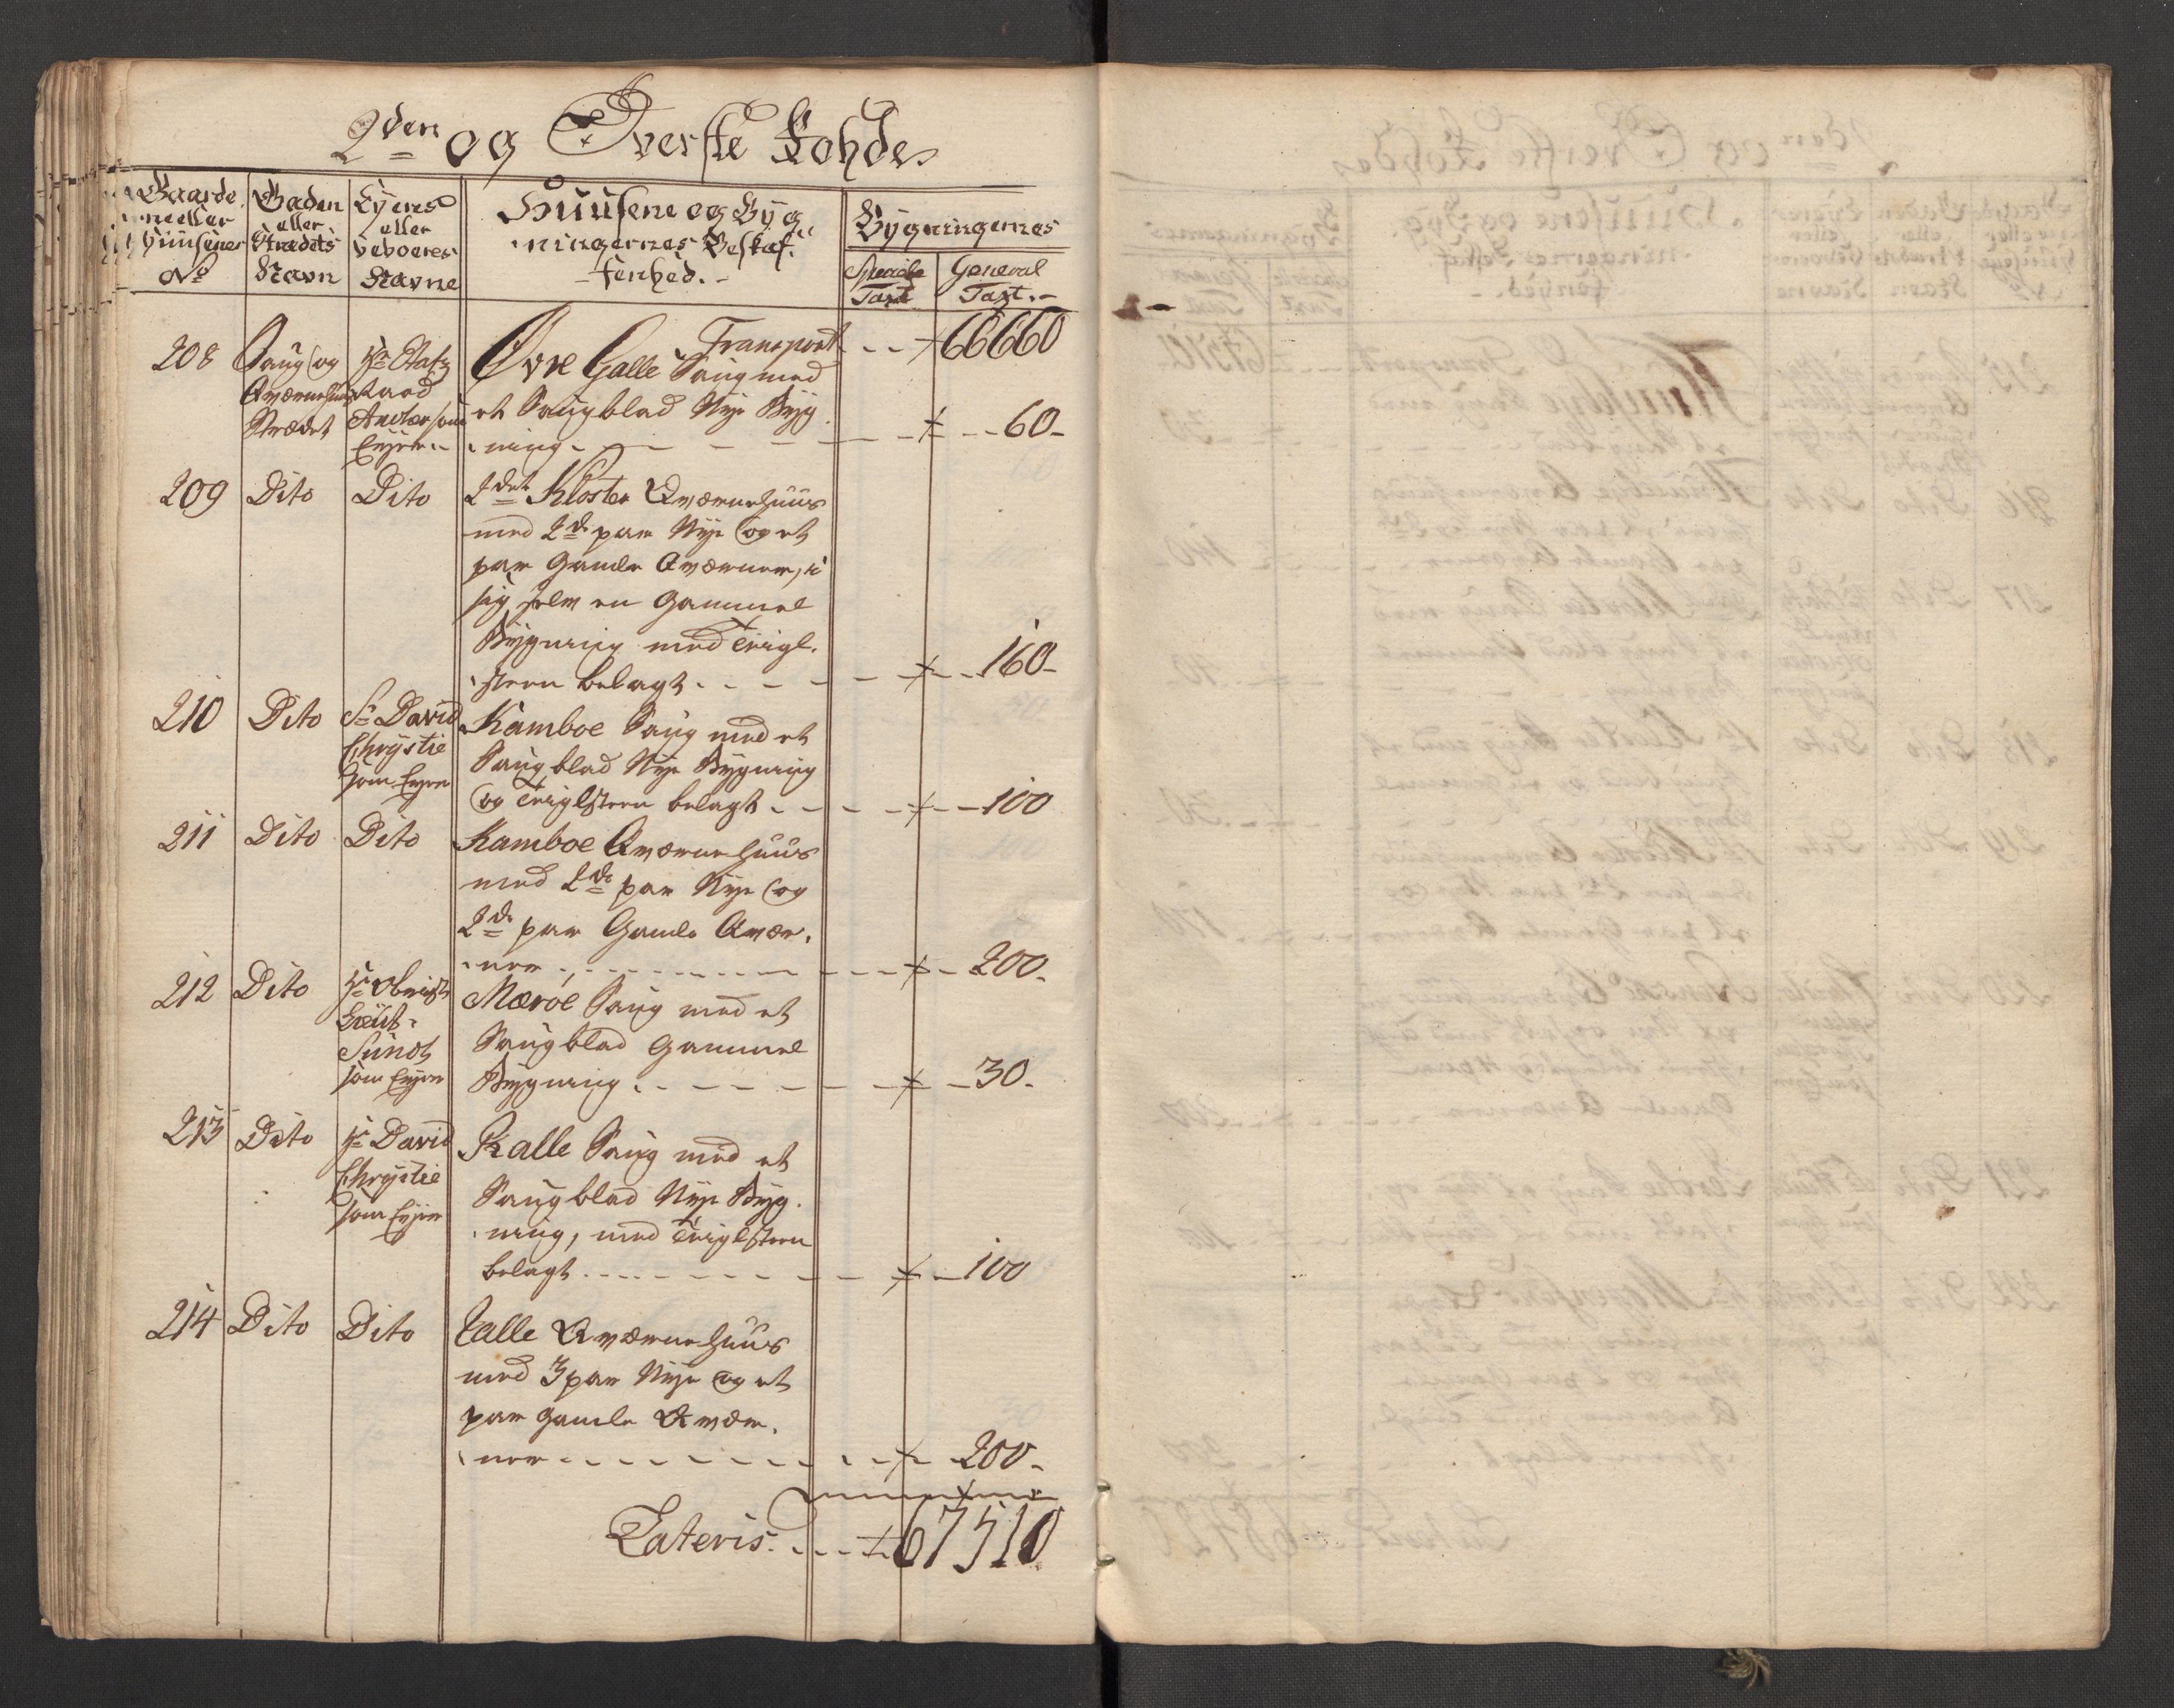 2den og Øverste Lohde
Gaarde
ne eller
Huusenes
No
Gaden
eller
Strædets
Navn
Eyeres
eller
beboeres
Navne
Huusene og Byg
ningernes Beskaf
fenhed.
Bygningernes
Speciale
Taxt
General
Taxt.
Transport 66660
208 Saug og
Qværnehuus
Strædet
Hr. Etatz
Raad
Eyer
Øvre Galle Saug med
et Saugblad Nye Byg
ning 60
209 Dito Dito 2det Kloster Qværnehuus
med 2de par Nye og et
par Gamle Qværner, i
sig selv en Gammel
Bygning med Teigl
steen belagt 160
210 Dito Sr David
Chrystie
som Eyer
Kamboe Saug med et
Saugblad Nye Bygning
og Teiglsteen belagt 100
211 Dito Dito Kamboe Qværnehuus
med 2de par Nye og
2de par Gamle Qvær
ner 200
212 Dito Hr Obrist
Leut
Sundt
som Eyer
Mæroe Saug med et
Saugblad Gammel
Bygning 30
213 Dito Hr David
Chrystie
som Eyer
Ralle Saug med et
Saugblad Nye Byg
ning, med Teiglsteen
belagt 100
214 Dito Dito Ralle Qværnehuus
med 3 par Nye og et
par gamle Qvær
ner 200
Lateris 67510